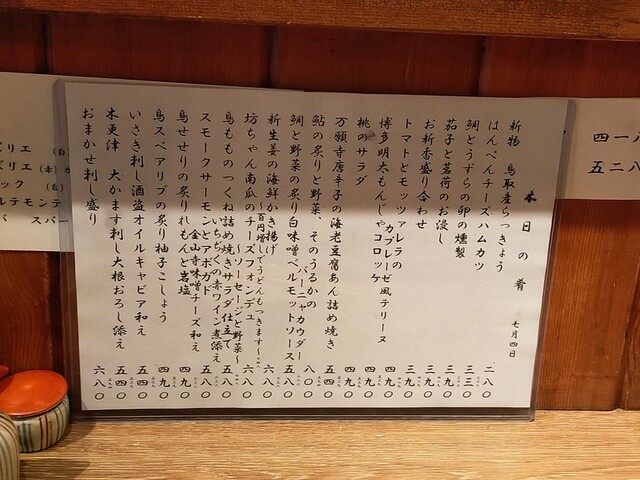 本日の肴　七月四日
新物　鳥取産らっきょう　二八〇
はんぺんチーズハムカツ　三三〇
鯛とうずらの卵の燻製　三九〇
茄子と茗荷のお浸し　三九〇
お新香盛り合わせ　三九〇
トマトとモッツァレラの
カプレーゼ風テリーヌ　三九〇
博多明太もんじゃコロッケ　四九〇
桃のサラダ　四九〇
万願寺唐辛子の海老豆腐あん詰め焼き　五四〇
鮎の炙りと野菜、そのうるかの
バーニャカウダー　八〇〇
鯛と野菜の炙り白味噌ベルモットソース　五八〇
新生姜の海鮮かき揚げ　六八〇
〜百円増しでうどんもつきます〜
坊ちゃん南瓜のチーズフォンデュ　六八〇
〜ソーセージと野菜〜
鳥もものつくね詰め焼きサラダ仕立て　五八〇
いちぢくの赤ワイン煮添え
スモークサーモンとアボガド　五九〇
金山寺味噌チーズ和え
鳥せせりの炙りれもんと岩塩　四九〇
鳥スペアリブの炙り柚子こしょう　四九〇
いさき刺し酒盗オイルキャビア和え　五四〇
木更津　大かます刺し大根おろし添え　五四〇
おまかせ刺し盛り　六八〇
四一八
五二八
リエ（白）
リエ（赤）
ック（白）
ルテモンテ
バ　スパー